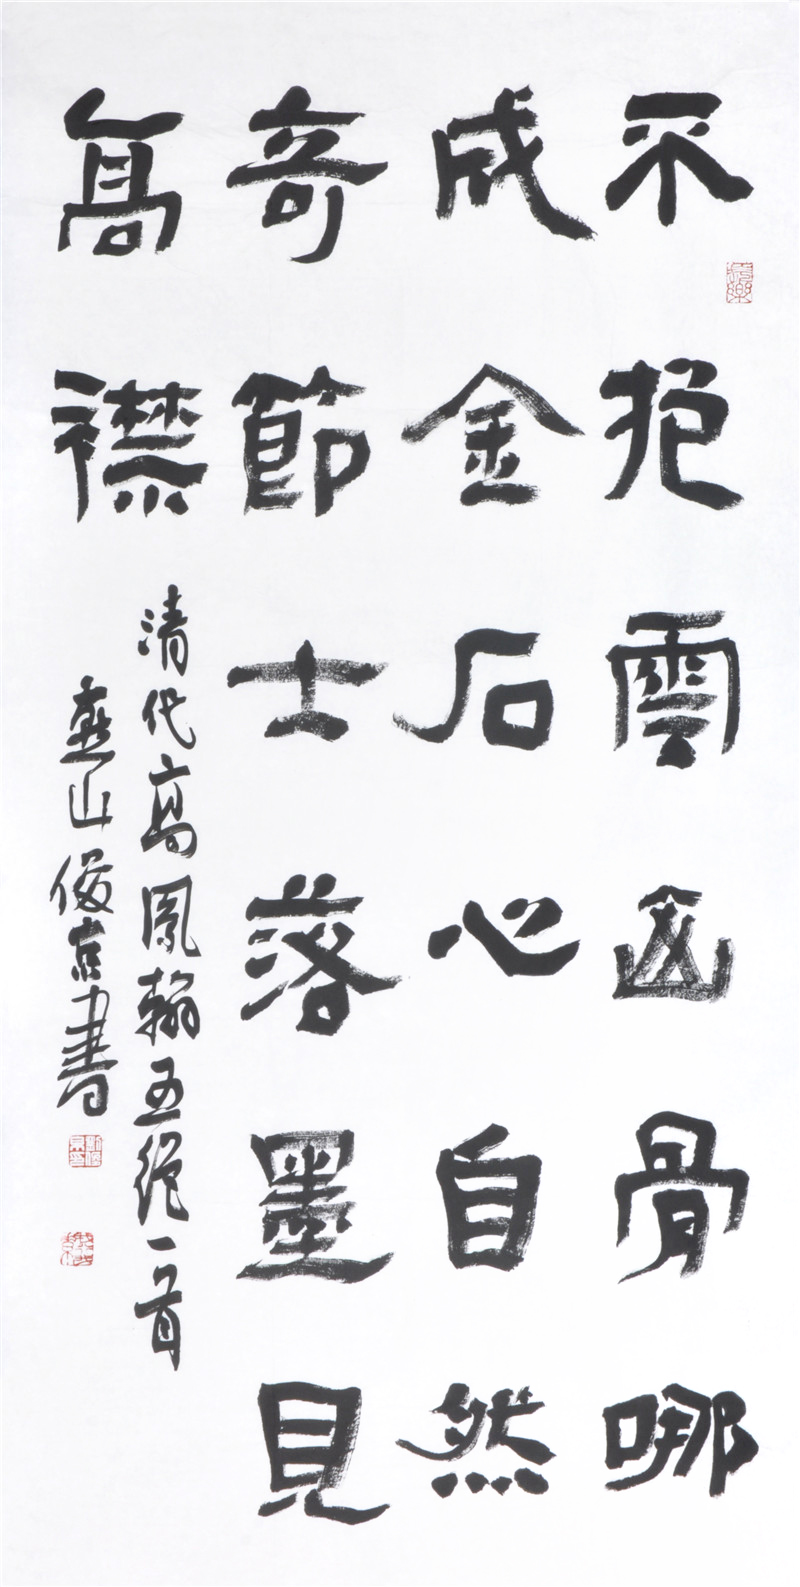 不抱雲山骨哪
成金石心自然
奇節士落墨見
髙襟
清代高鳳翰五绝一首
燕山俊書